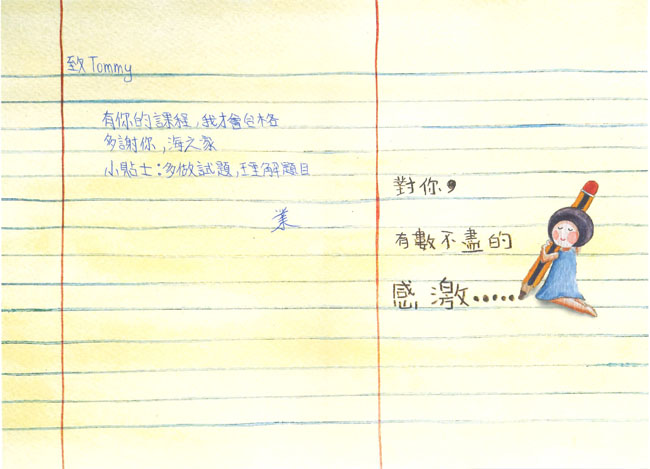 致Tommy
有你的課程,我才會合格
多謝你,海之家
小貼士:多做試題,理解題目
業
對你,
有數不盡的
感激......